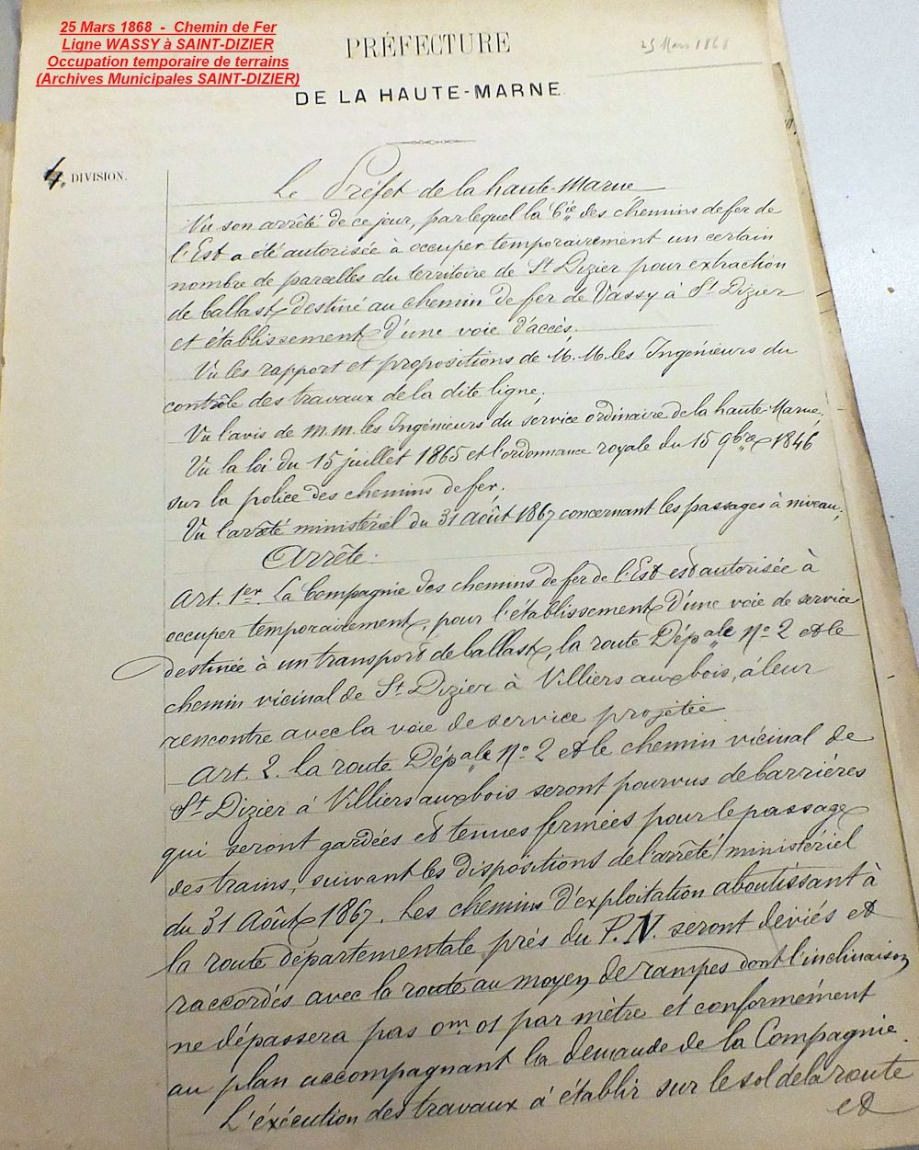 25 Mars 1868 - Chemin de Fer
Ligne WASSY à SAINT-DIZIER
Occupation temporaire de terrains
(Archives Municipales SAINT-DIZIER)
PRÉFECTURE
25 Mars 1868
DE LA HAUTE-MARNE
4. DIVISION.
Le Préfet de la haute-Marne
Vu son arrêté de ce jour, par lequel la Cie des chemins de fer de
l'Est a été autorisée à occuper temporairement un certain
nombre de parcelles du territoire de St Dizier pour extraction
de ballast destiné au chemin de fer de Vassy à St Dizier
et établissement d'une voie d'accès.
Vu les rapport et propositions de M.M. les Ingénieurs du
contrôle des travaux de la dite ligne;
Vu l'avis de m.m. les Ingénieurs du service ordinaire de la haute-Marne;
Vu la loi du 15 juillet 1865 et l'ordonnance royale du 15 9bre 1846
sur la police des chemins de fer.
Vu l'arrêté ministériel du 31 Août 1867 concernant les passages à niveau;
Arrête:
Art. 1er. La Compagnie des chemins de fer de l'Est est autorisée à
occuper temporairement, pour l'établissement d'une voie de service
destinée à un transport de ballast, la route Dépale No 2 et le
chemin vicinal de St Dizier à Villiers aux bois, à leur
rencontre avec la voie de service projetée
Art. 2. la route Dépale No 2 et le chemin vicinal de
St Dizier à Villiers aux bois seront pourvus de barrières
qui seront gardées et tenues fermées pour le passage
des trains, suivant les dispositions de l'arrêté ministériel
du 31 Août 1867. Les chemins d'exploitation aboutissant à
la route départementale près du P.N. seront déviés et
raccordés avec la route au moyen de rampes dont l'inclinaison
ne dépassera pas 0m 01 par mètre et conformément
au plan accompagnant la demande de la Compagnie.
L'éxécution des travaux à établir sur le sol de la route
et